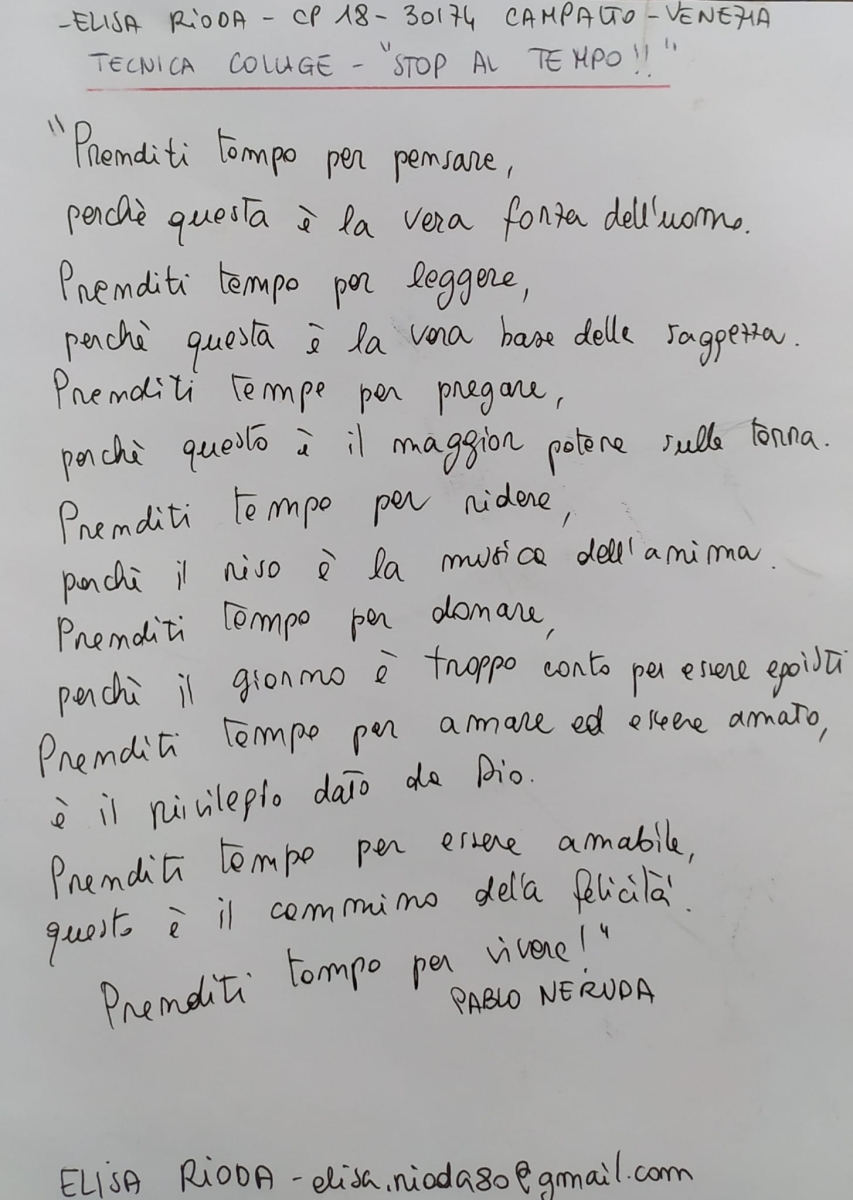 -ELISA RIODA - CP 18 - 30174 CAMPALTO - VENEZIA
TECNICA COLLAGE - "STOP AL TEMPO!!"
"Prenditi tempo per pensare,
perchè questa è la vera forza dell'uomo.
Prenditi tempo per leggere,
perchè questa è la vera base della saggezza.
Prenditi tempo per pregare,
perchè questo è il maggior potere sulla terra.
Prenditi tempo per ridere,
perchè il riso è la musica dell'anima.
Prenditi tempo per donare,
perchè il giorno è troppo corto per essere egoisti
Prenditi tempo per amare ed essere amato,
è il privilegio dato da Dio.
Prenditi tempo per essere amabile,
questo è il cammino della felicità.
Prenditi tempo per vivere!"
PABLO NERUDA
ELISA RIODA - elisa.rioda80@gmail.com